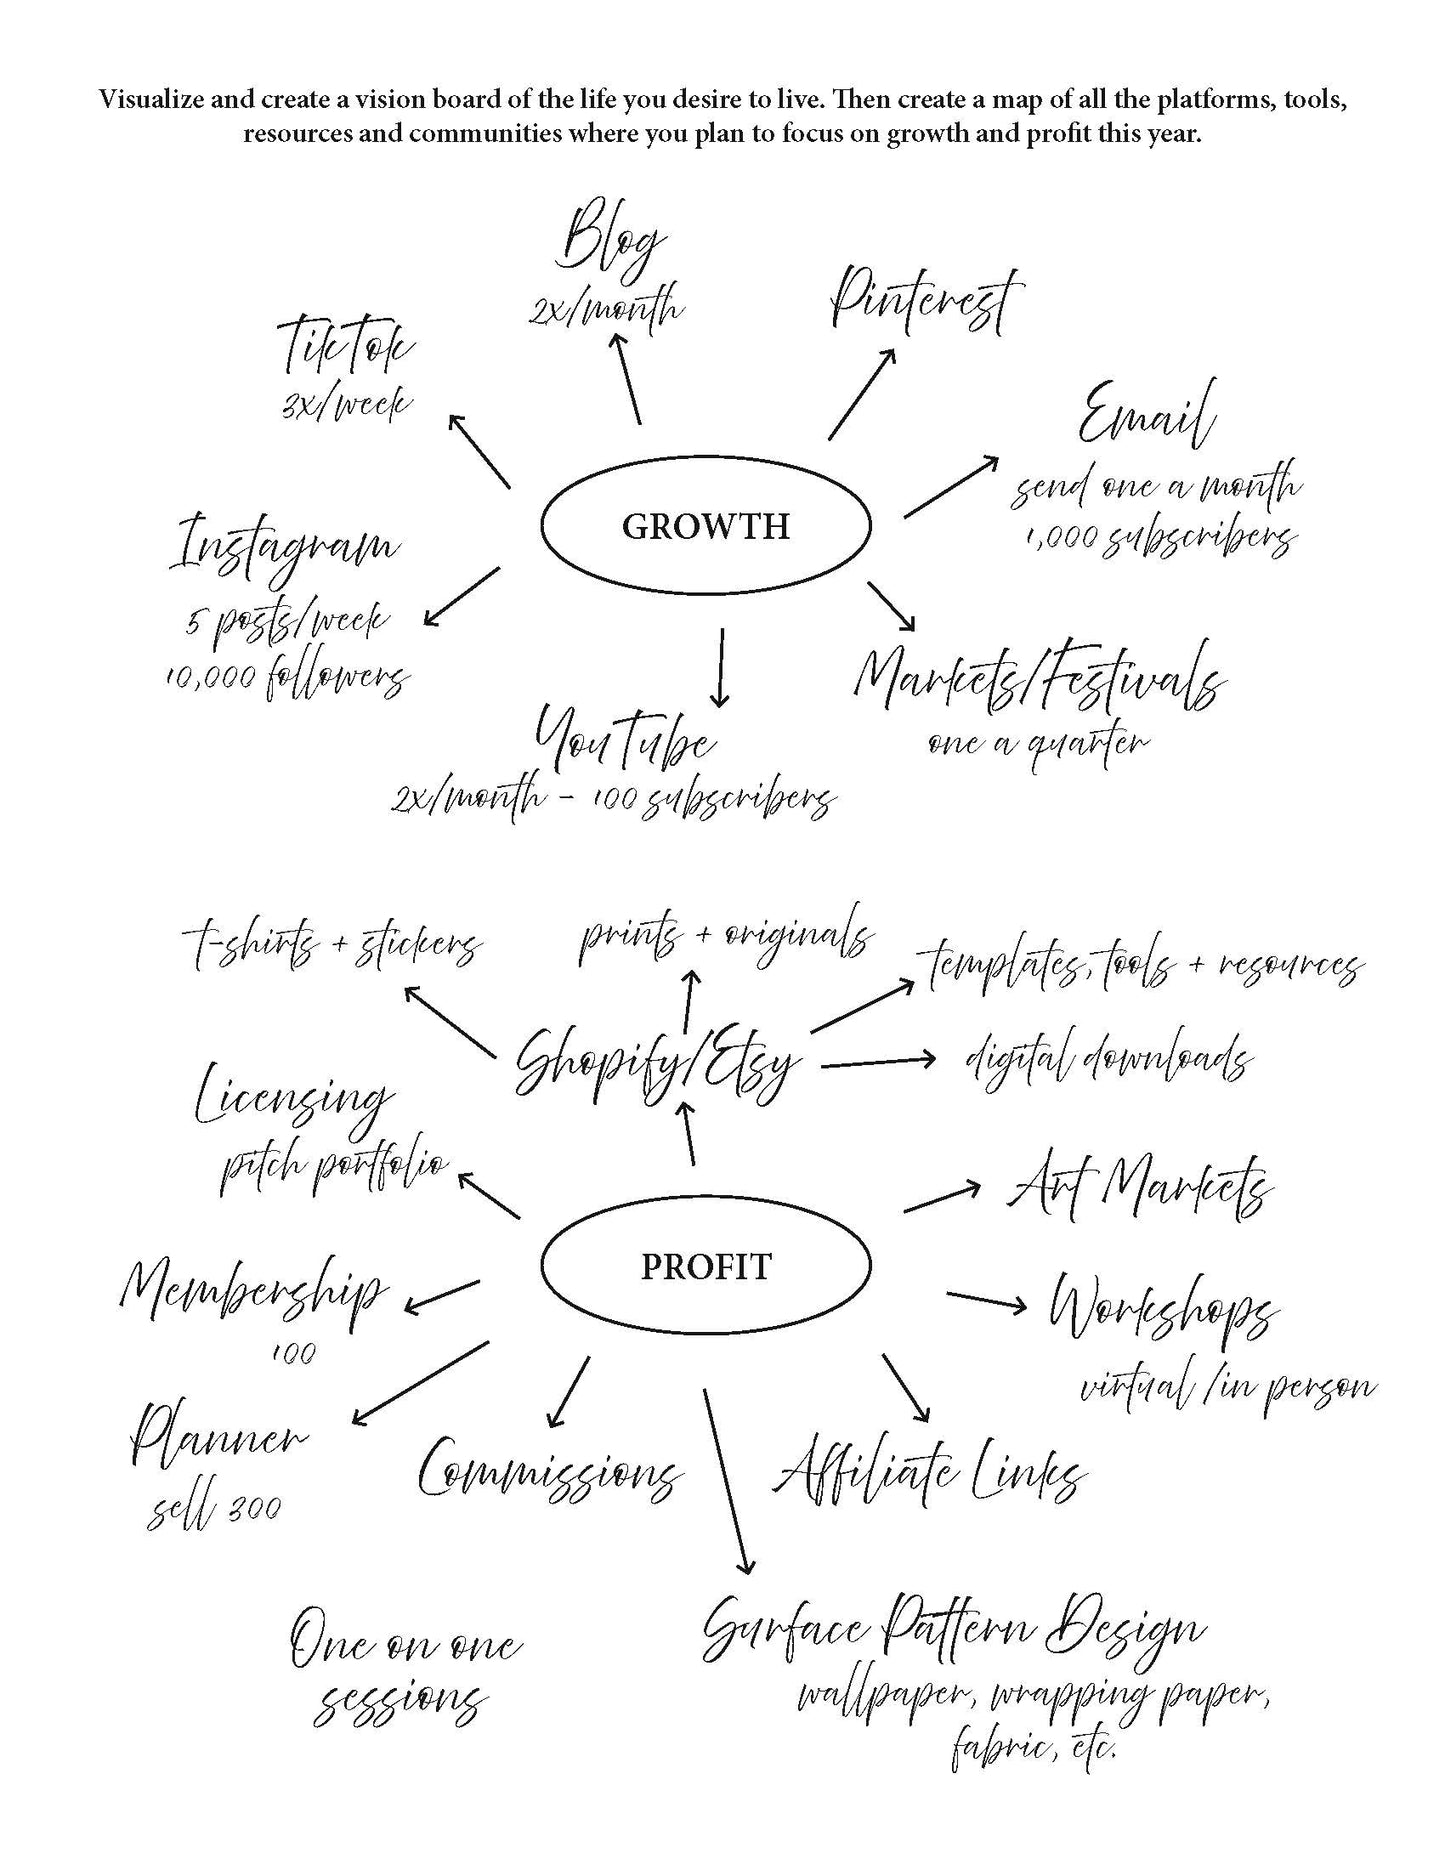 Visualize and create a vision board of the life you desire to live. Then create a map of all the platforms, tools,
resources and communities where you plan to focus on growth and profit this year.
Blog
2x/month
Pinterest
TikTok
3x/week
Email
send one a month
1,000 subscribers
GROWTH
Instagram
5 posts/week
10,000 followers
Markets/Festivals
one a quarter
YouTube
2x/month - 100 subscribers
t-shirts + stickers
prints + originals
templates, tools + resources
Shopify/Etsy
digital downloads
Licensing
pitch portfolio
Art Markets
PROFIT
Membership
100
Workshops
virtual /in person
Planner
sell 300
Commissions
Affiliate Links
One on one
sessions
Surface Pattern Design
wallpaper, wrapping paper,
fabric, etc.